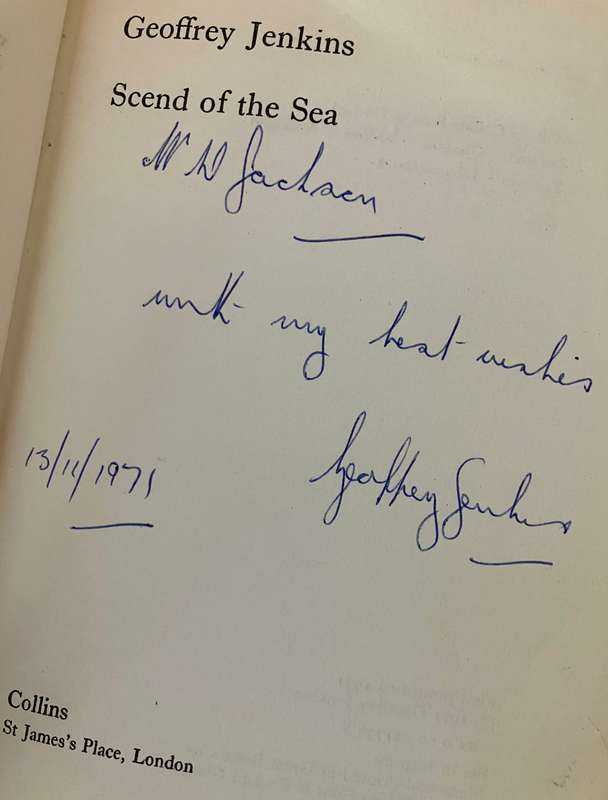 Geoffrey Jenkins
Scend of the Sea
W D Jackson
with my best wishes
13/11/1971
Geoffrey Jenkins
Collins
St James's Place, London